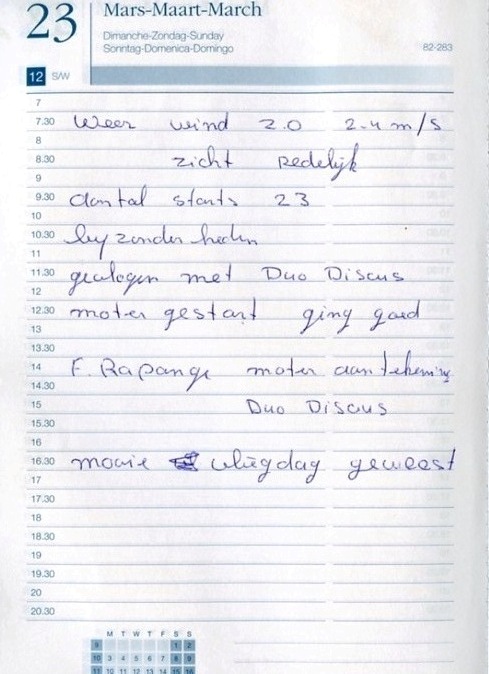 23 Mars-Maart-March
Dimanche-Zondag-Sunday
Sonntag-Domenica-Domingo
82-283
12 S/W
7
7.30 Weer wind 2.0 2-4 m/s
8
8.30 zicht redelijk
9
9.30 aantal starts 23
10
10.30 byzonder heden
11
11.30 gevlogen met Duo Discus
12
12.30 moter gestart ging goed
13
13.30
14 F. Rapange moter aantekening
14.30
15 Duo Discus
15.30
16
16.30 mooie vliegdag geweest
17
17.30
18
18.30
19
19.30
20
20.30
M T W T F S S
9 1 2
10 3 4 5 6 7 8 9
11 10 11 12 13 14 15 16